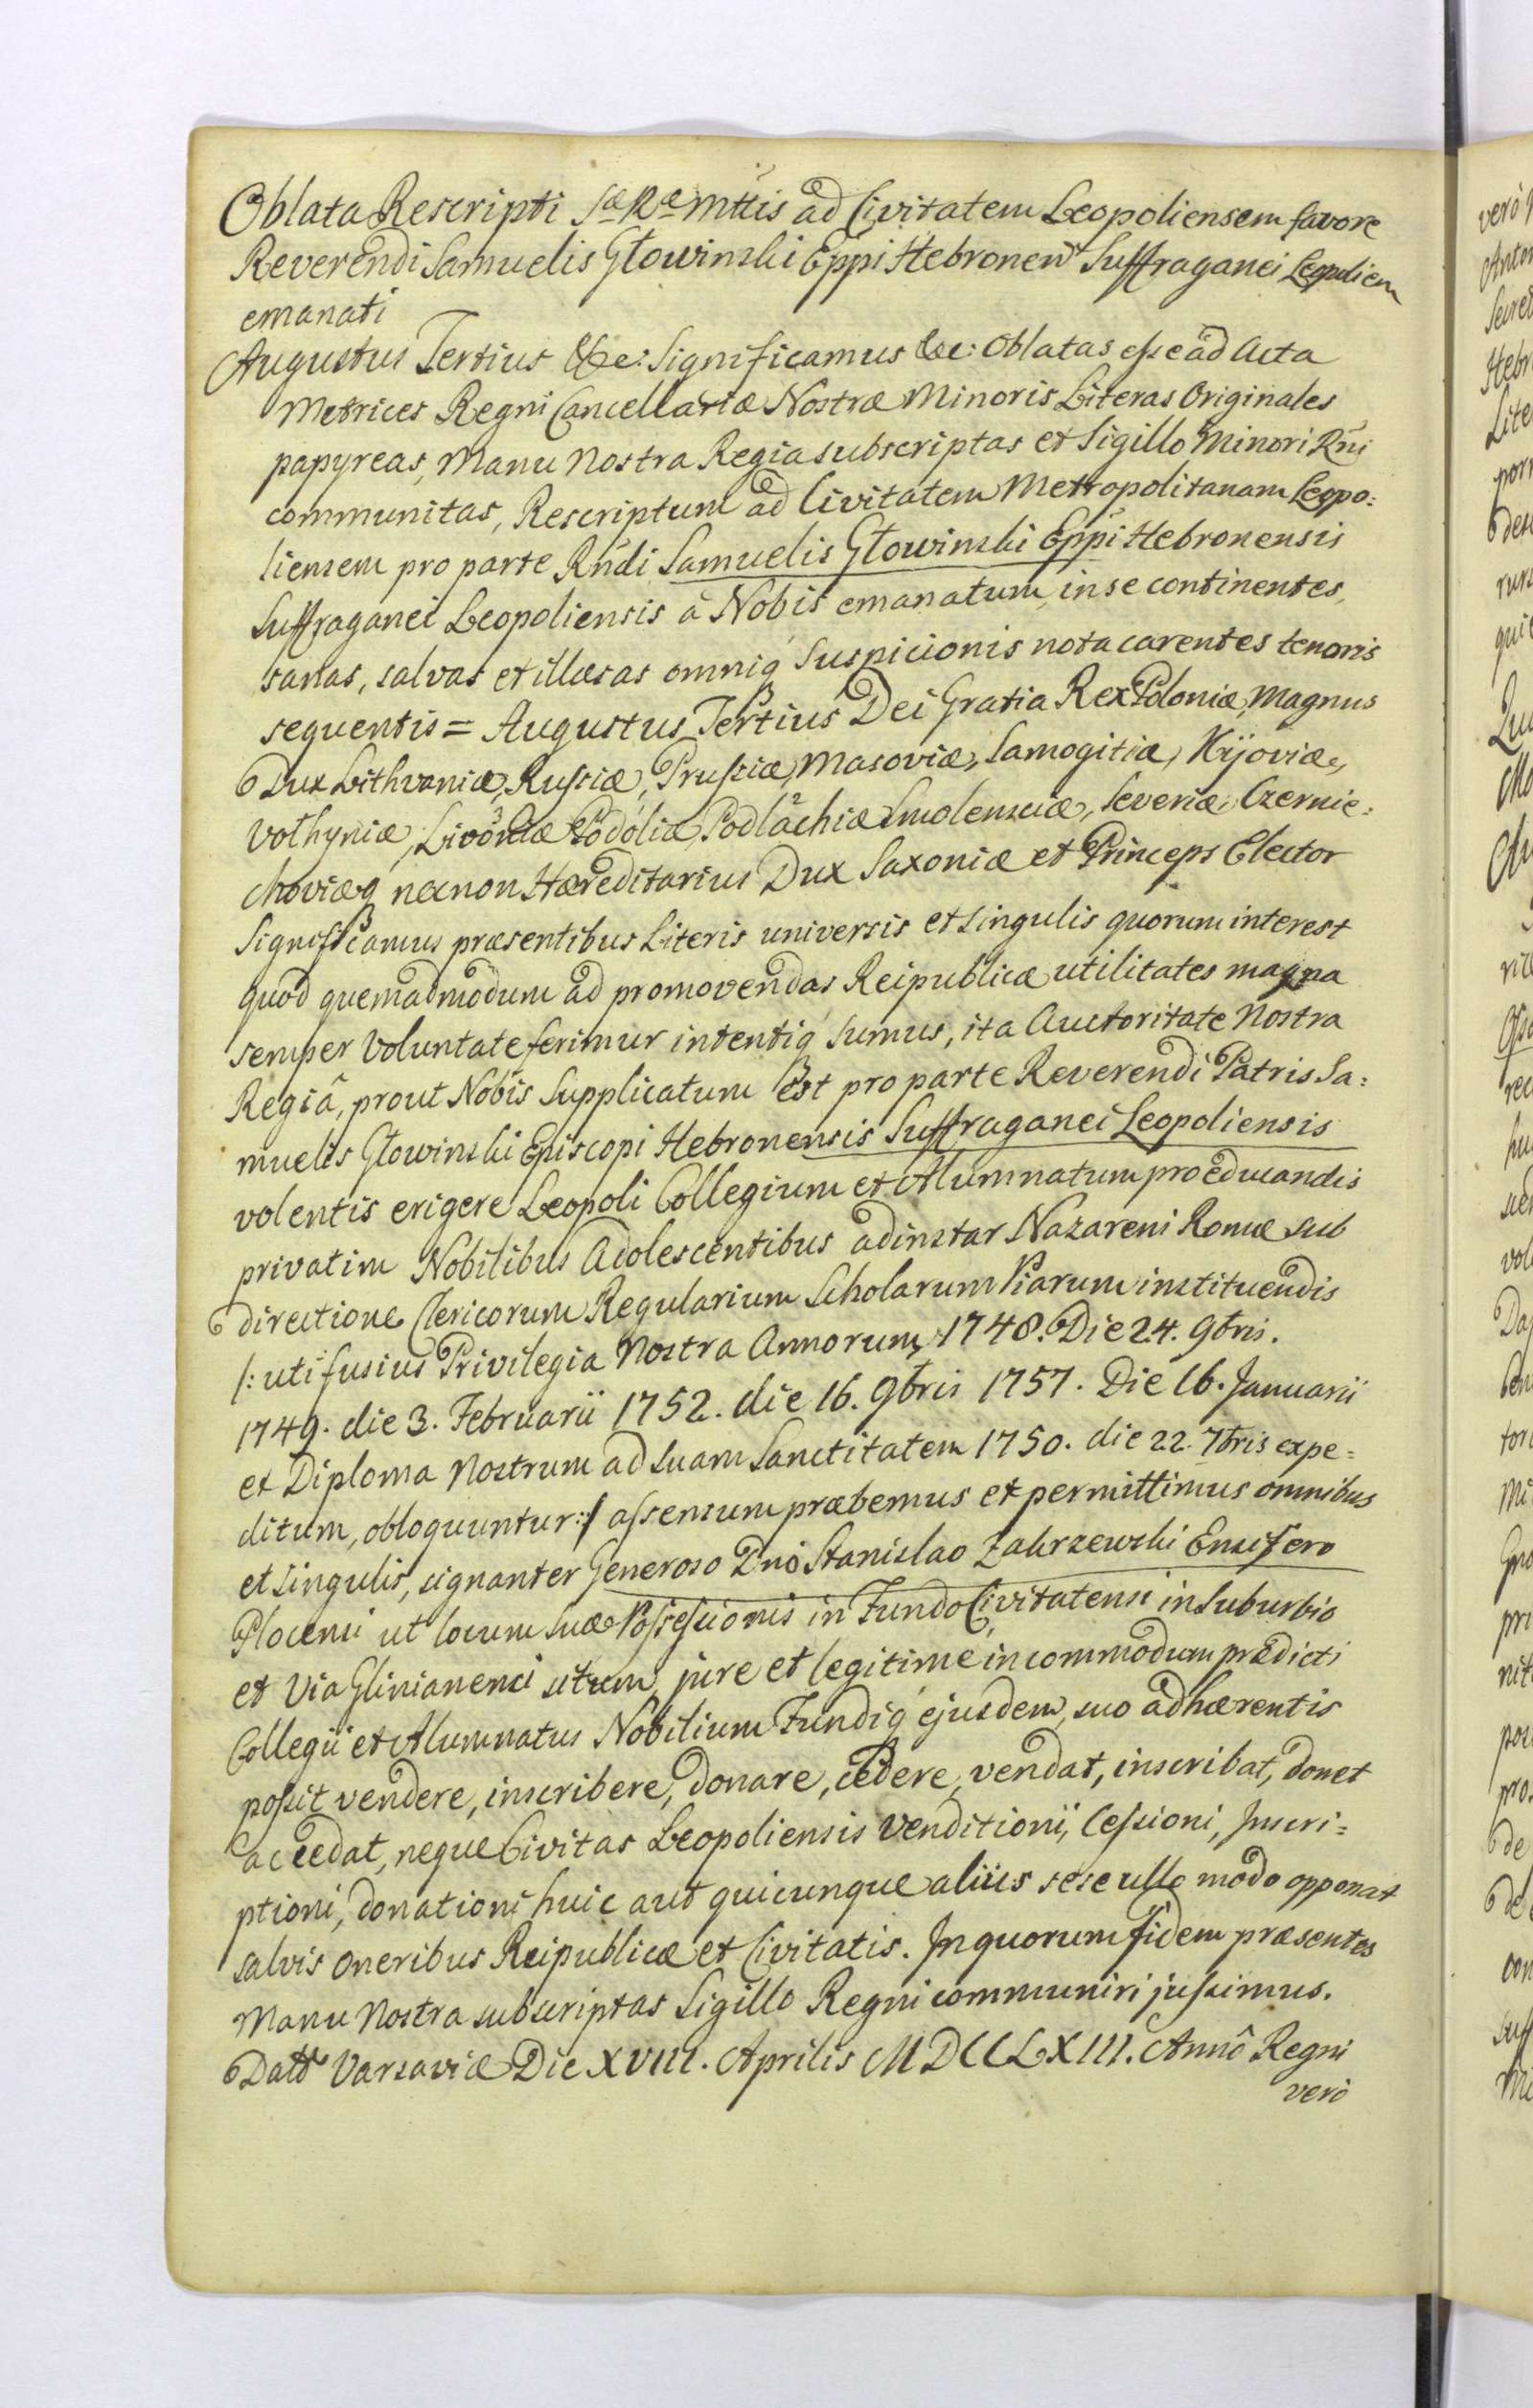 Oblata Rescripti Sæ Ræ Mttis ad Civitatem Leopoliensem favore
Reverendi Samuelis Głowinski Eppi Hebronen Suffraganei Leopolien
emanati
Augustus Tertius &c: Significamus &c: Oblatas esse ad Acta
Metrices Regni Cancellariæ Nostræ Minoris Literas Originales
papyreas, Manu Nostra Regia subscriptas et Sigillo Minori Rni
communitas, Rescriptum ad Civitatem Metropolitanam Leopo:
liensem pro parte Rndi Samuelis Głowinski Eppi Hebronensis
Suffraganei Leopoliensis à Nobis emanatum, in se continentes,
sanas, salvas et illæsas omniq suspicionis nota carentes tenoris
sequentis = Augustus Tertius Dei Gratia Rex Poloniæ, Magnus
Dux Lithvaniæ, Russiæ, Prussiæ, Masoviæ, Samogitiæ, Kijoviæ,
Volhyniæ, Livoniæ Podoliæ, Podlachiæ Smolensciæ, Severiæ, Czernie:
choviæq necnon Hæreditarius Dux Saxoniæ et Princeps Elector
Significamus præsentibus Literis universis et singulis quorum interest
quod quemadmodum ad promovendas Reipublicæ utilitates magna
semper voluntate ferimur intentiq sumus, ita Auctoritate Nostra
Regiâ, prout Nobis Supplicatum est pro parte Reverendi Patris Sa:
muelis Głowinski Episcopi Hebronensis Suffraganei Leopoliensis
volentis erigere Leopoli Collegium et Alumnatum pro educandis
privatim Nobilibus Adolescentibus ad instar Nazareni Romæ sub
directione Clericorum Regularium Scholarum Piarum instituendis
/: uti fusius Privilegia Nostra Annorum, 1748. Die 24. 9bris.
1749. die 3. Februarii 1752. die 16. 9bris 1757. Die 16. Januarii
et Diploma Nostrum ad Suam Sanctitatem 1750. die 22. 7bris expe=
ditum, obloquuntur :/ assensum præbemus et permittimus omnibus
et singulis, signanter Generoso Dno Stanislao Zakrzewski Ensifero
Plocensi ut locum suæ Possessionis in Fundo Civitatensi in Suburbio
et Via Glinianensi situm, jure et legitime in commodum prædicti
Collegii et Alumnatus Nobilium Fundiq ejusdem, suo adhærentis
possit vendere, inscribere, donare, cedere, vendat, inscribat, donet
ac cedat, neque Civitas Leopoliensis Venditioni, Cessioni, Inscri=
ptioni, donationi huic aut quicunque aliis sese ullo modo opponat
salvis oneribus Reipublicæ et Civitatis. In quorum fidem præsentes
Manu Nostra subscriptas Sigillo Regni communiri jussimus.
Datt Varsaviæ Die XVIII. Aprilis MDCCLXIII. Annô Regni
verò